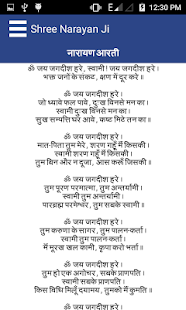 12:30 PM
Shree Narayan Ji
नारायण आरती
ॐ जय जगदीश हरे, स्वामी! जय जगदीश हरे।
भक्त जनों के संकट, क्षण में दूर करे॥
ॐ जय जगदीश हरे।
जो ध्यावे फल पावे, दुःख विनसे मन का।
स्वामी दुःख विनसे मन का।
सुख सम्पत्ति घर आवे, कष्ट मिटे तन का॥
ॐ जय जगदीश हरे।
मात-पिता तुम मेरे, शरण गहूँ मैं किसकी।
स्वामी शरण गहूँ मैं किसकी।
तुम बिन और न दूजा, आस करूँ जिसकी॥
ॐ जय जगदीश हरे।
तुम पूरण परमात्मा, तुम अन्तर्यामी।
स्वामी तुम अन्तर्यामी।
पारब्रह्म परमेश्वर, तुम सबके स्वामी॥
ॐ जय जगदीश हरे।
तुम करुणा के सागर, तुम पालन-कर्ता।
स्वामी तुम पालन-कर्ता।
मैं मूरख खल कामी, कृपा करो भर्ता॥
ॐ जय जगदीश हरे।
तुम हो एक अगोचर, सबके प्राणपति।
स्वामी सबके प्राणपति।
किस विधि मिलूँ दयामय, तुमको मैं कुमति॥
ॐ जय जगदीश हरे।